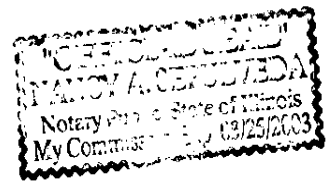 "OFFICIAL SEAL"
NANCY A. SEPULVEDA
Notary Public State of Illinois
My Commission 03/25/2003